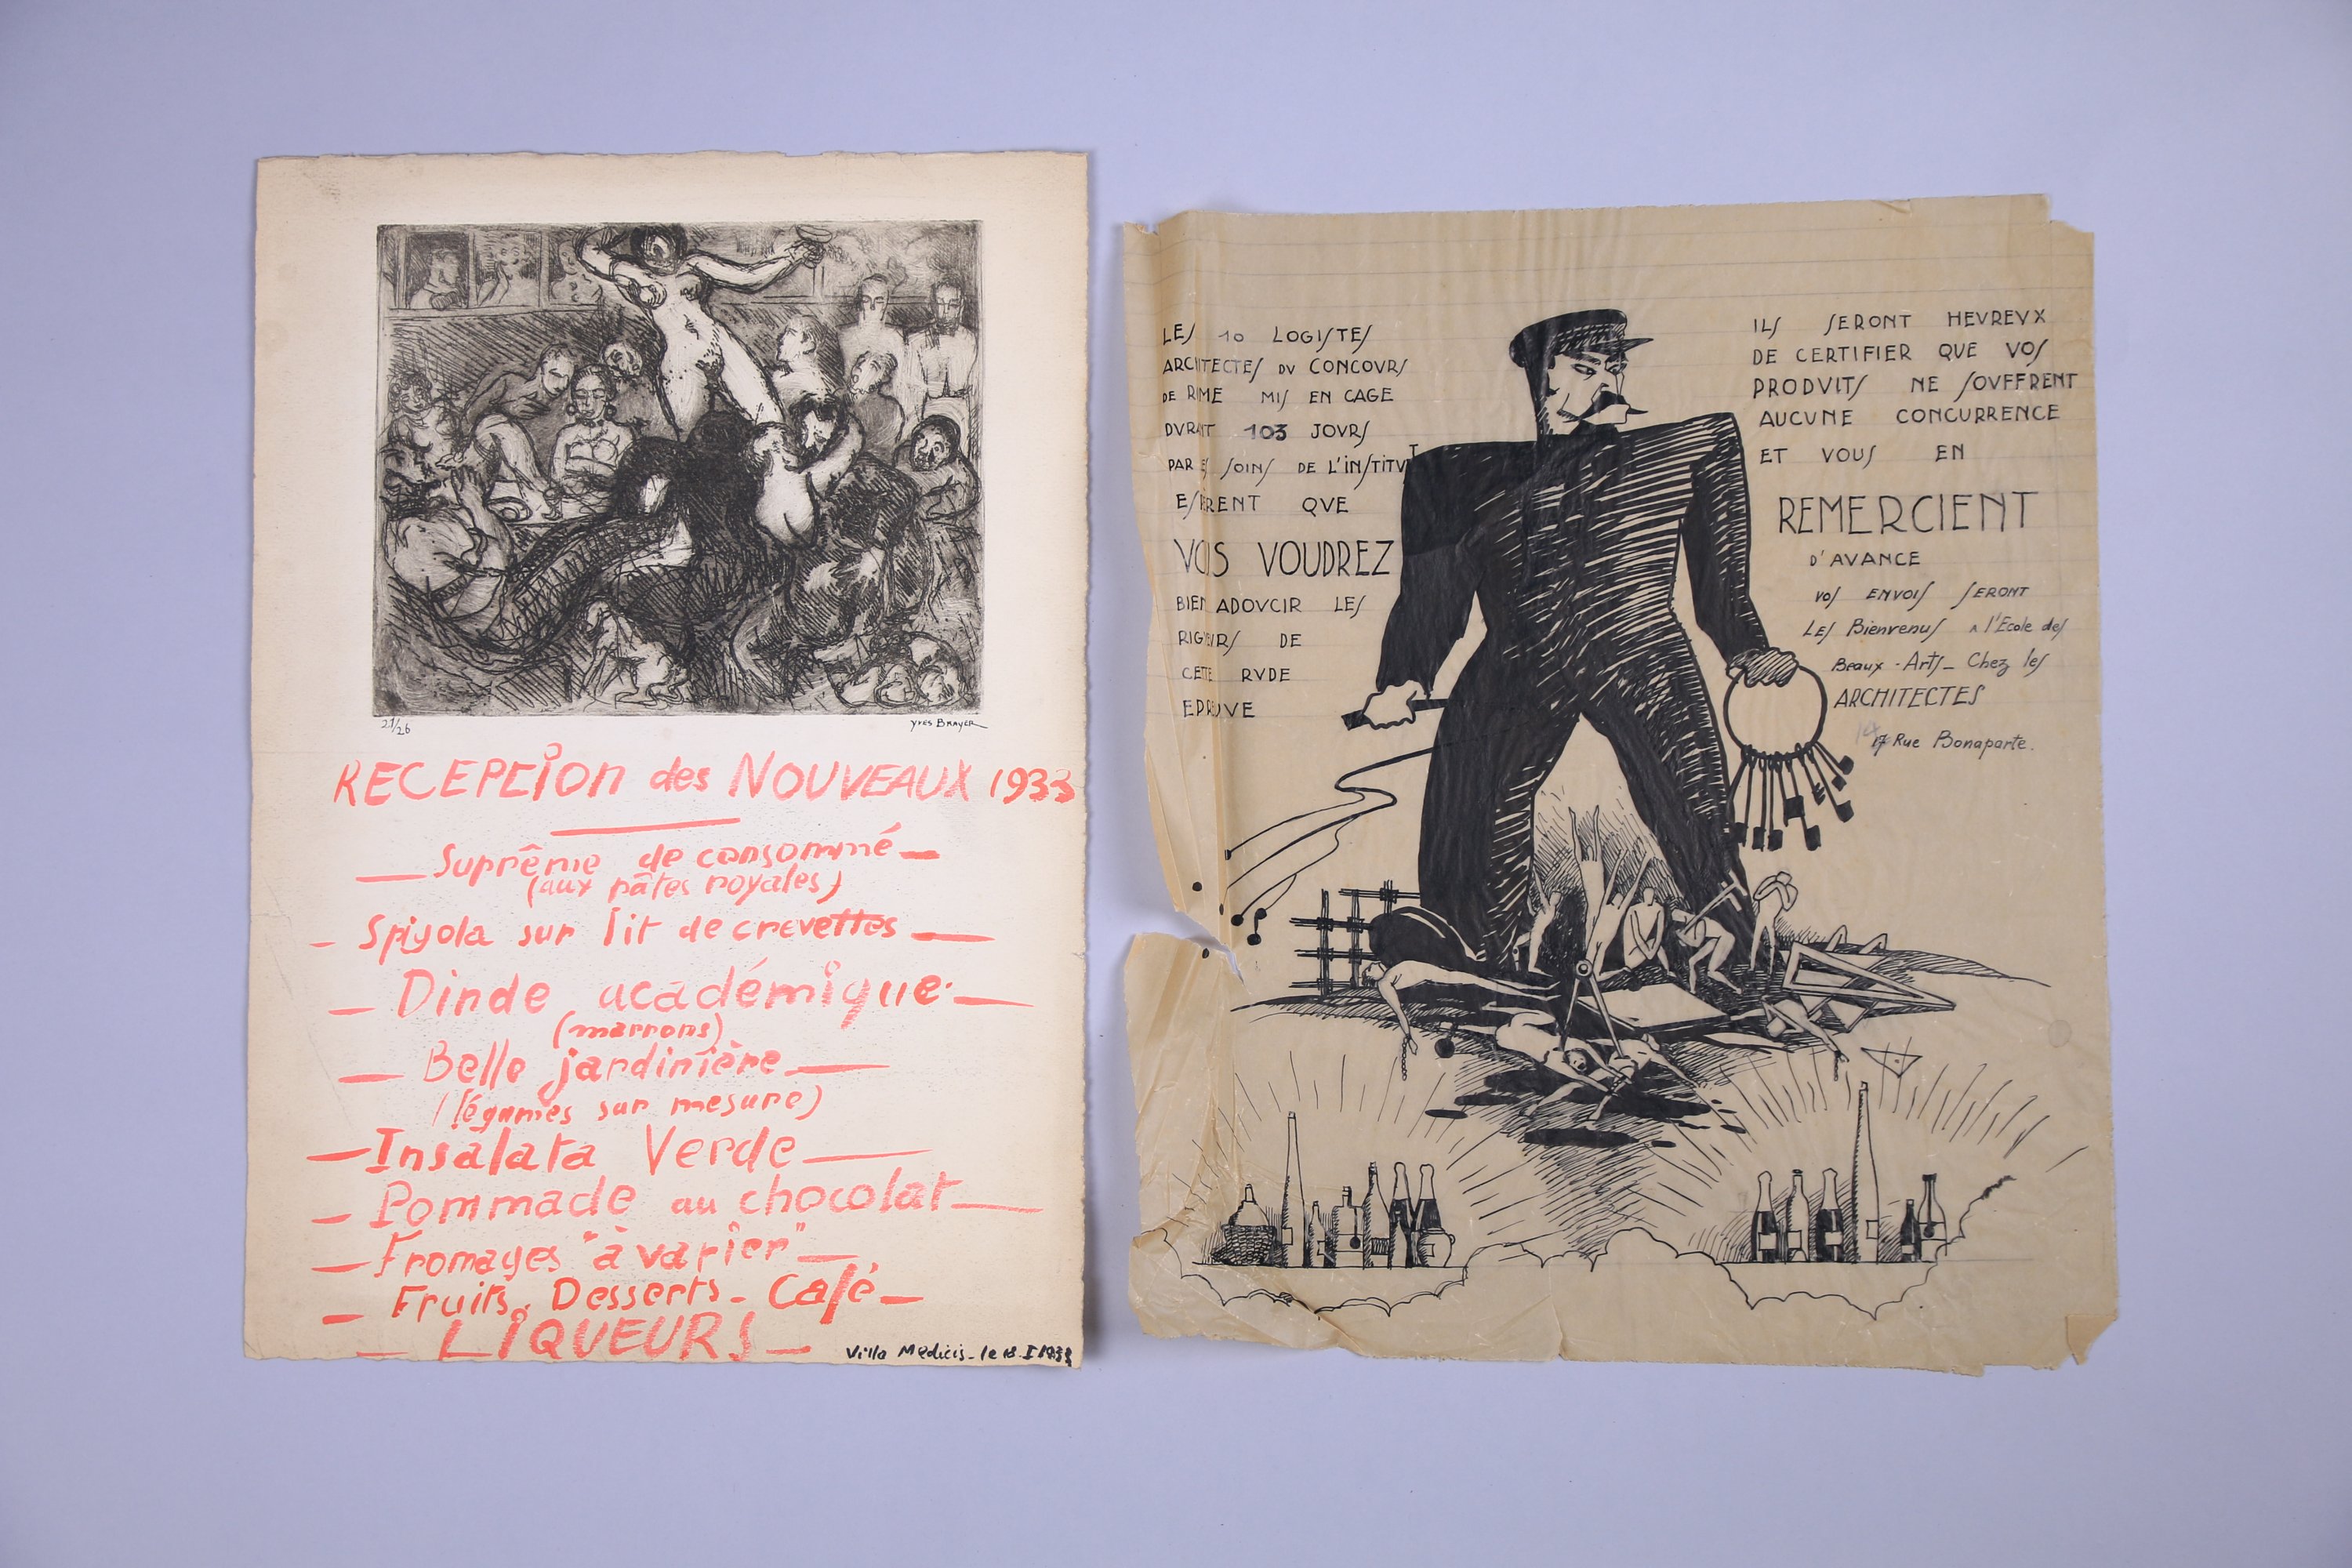 21/26
YVES BRAYER
RECEPTION des NOUVEAUX 1933
Suprême de consommé
(aux pâtes royales)
Spigola sur lit de crevettes
Dinde académique
(marrons)
Belle jardinière
(légumes sur mesure)
Insalata Verde
Pommade au chocolat
Fromages "à varier"
Fruits. Desserts - Café
LIQUEURS
Villa Médicis - le 18 I 1933
LES 10 LOGISTES
ARCHITECTES DV CONCOVRS
DE R ME MIS EN CAGE
DVRA T 103 JOVRS
PAR ES SOINS DE L'INSTITVT
ESPÈRENT QVE
VOUS VOUDREZ
BIEN ADOVCIR LES
RIGUEVRS DE
CETTE RVDE
EPREUVE
ILS SERONT HEVREVX
DE CERTIFIER QVE VOS
PRODVITS NE SOVFFRENT
AUCUNE CONCURRENCE
ET VOUS EN
REMERCIENT
D'AVANCE
VOS ENVOIS SERONT
LES Bienvenus A l'Ecole des
Beaux-Arts - Chez les
ARCHITECTES
17 Rue Bonaparte.